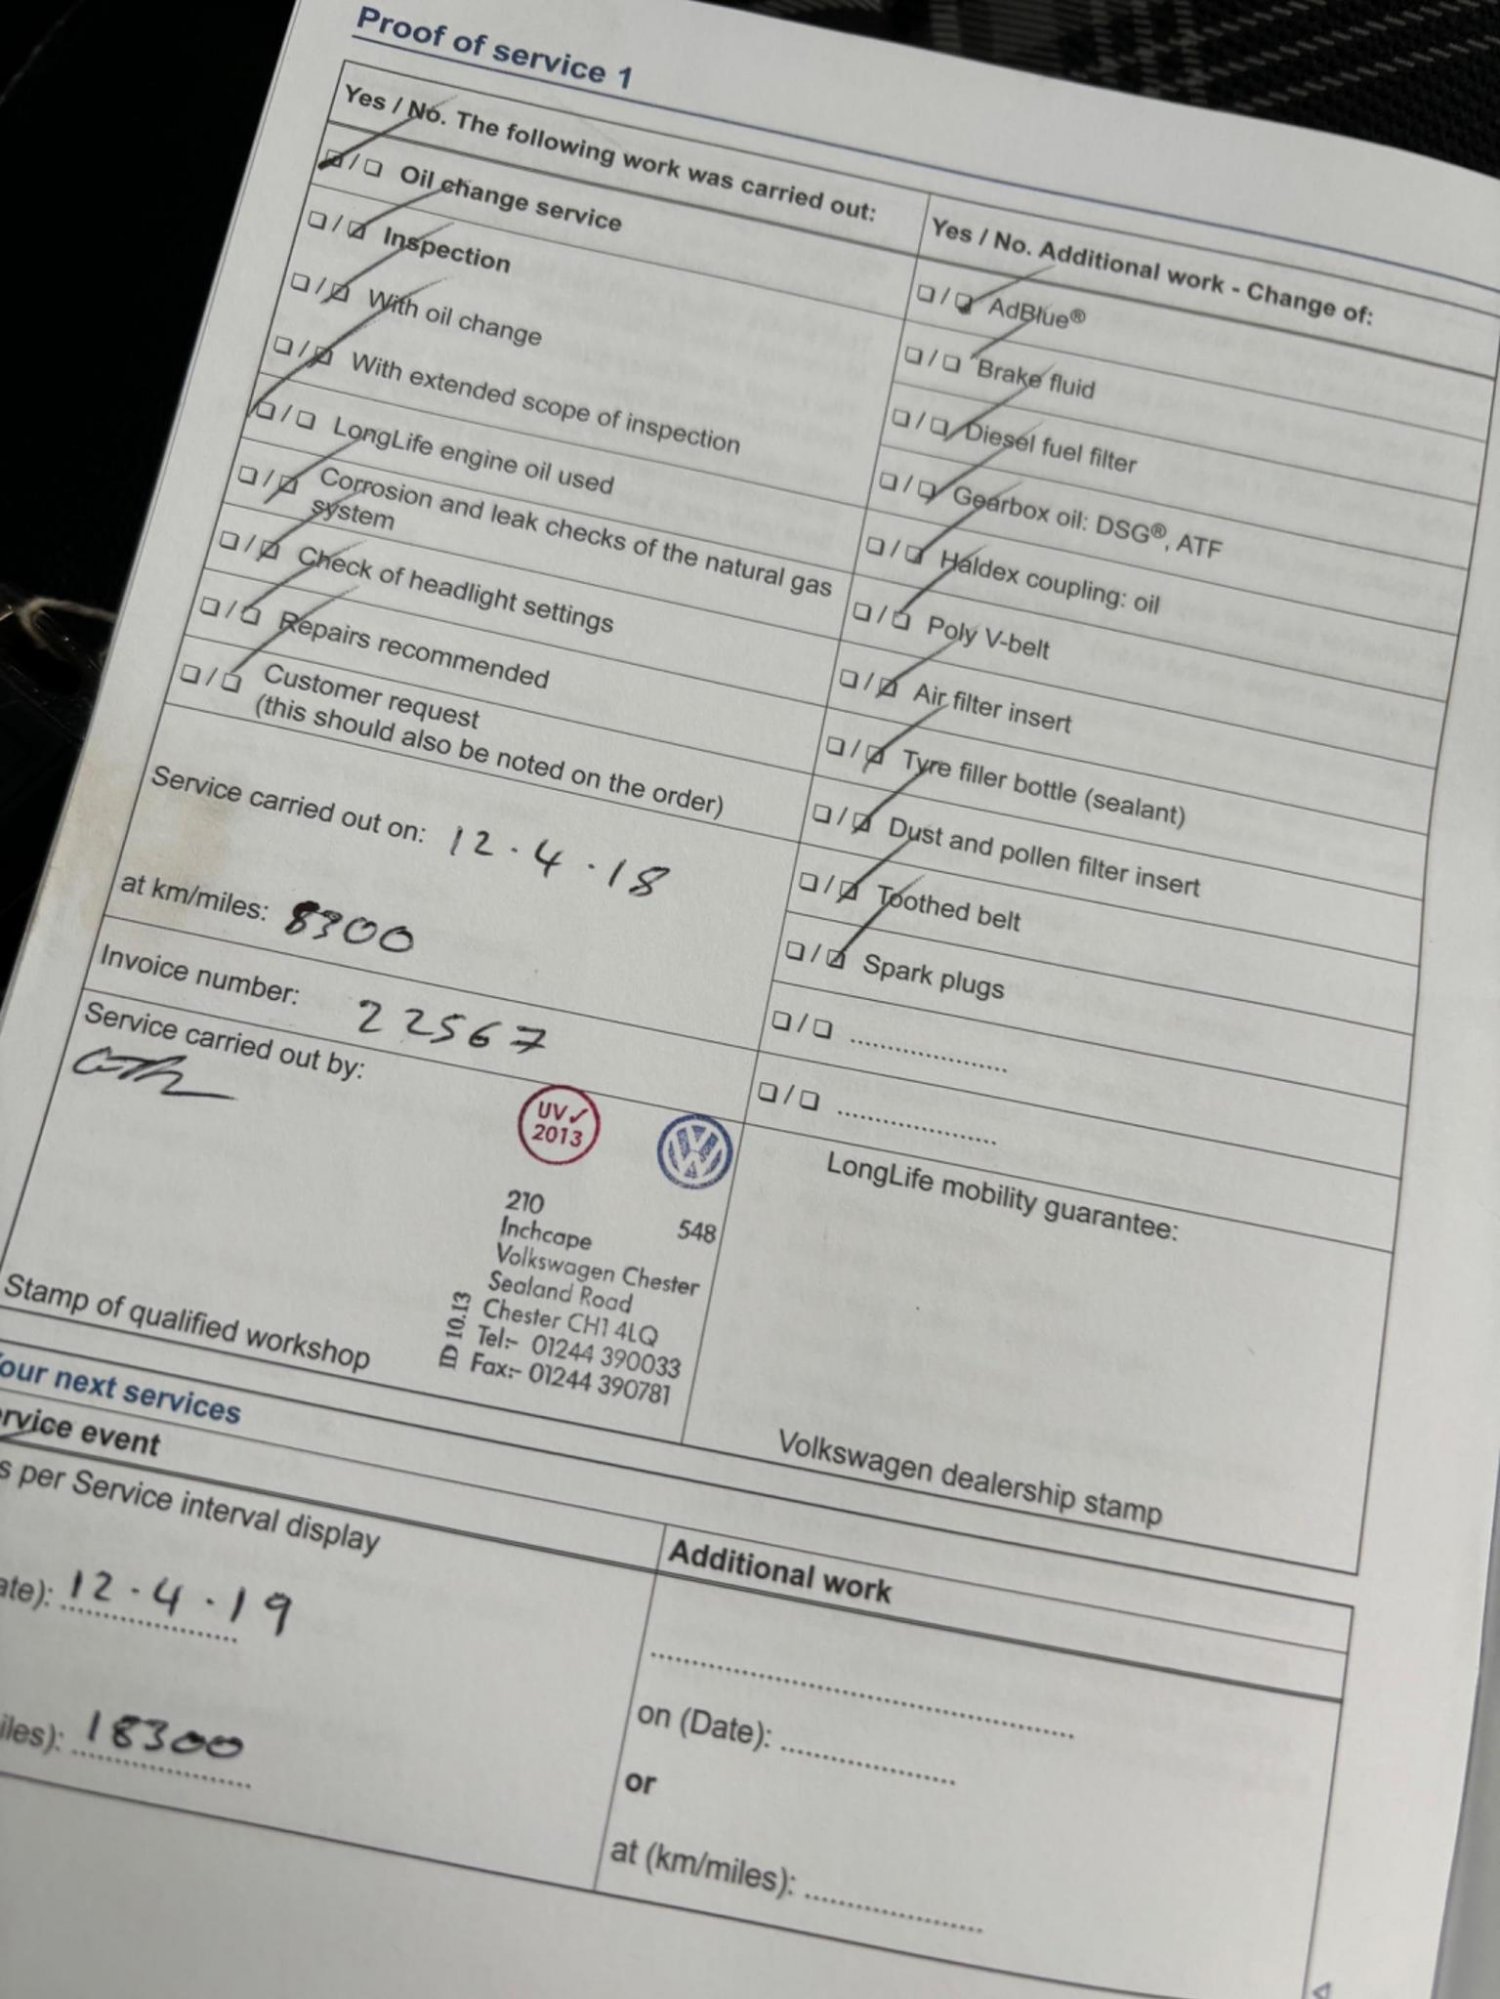 Proof of service 1
Yes / No. The following work was carried out:
❑ / ❑ Oil change service
❑ / ❑ Inspection
❑ / ❑ With oil change
❑ / ❑ With extended scope of inspection
❑ / ❑ LongLife engine oil used
❑ / ❑ Corrosion and leak checks of the natural gas
system
❑ / ❑ Check of headlight settings
❑ / ❑ Repairs recommended
❑ / ❑ Customer request
(this should also be noted on the order)
Service carried out on: 12.4.18
at km/miles: 8300
Invoice number: 22567
Service carried out by:
UV✓
2013
VW
210
548
Inchcape
Volkswagen Chester
Sealand Road
Chester CH1 4LQ
Tel:- 01244 390033
Fax:- 01244 390781
ID 10.13
Stamp of qualified workshop
Yes / No. Additional work - Change of:
❑ / ❑ AdBlue®
❑ / ❑ Brake fluid
❑ / ❑ Diesel fuel filter
❑ / ❑ Gearbox oil: DSG®, ATF
❑ / ❑ Haldex coupling: oil
❑ / ❑ Poly V-belt
❑ / ❑ Air filter insert
❑ / ❑ Tyre filler bottle (sealant)
❑ / ❑ Dust and pollen filter insert
❑ / ❑ Toothed belt
❑ / ❑ Spark plugs
❑ / ❑ ....................
❑ / ❑ ....................
LongLife mobility guarantee:
Volkswagen dealership stamp
our next services
rvice event
s per Service interval display
ate): 12.4.19
iles): 18300
Additional work
on (Date): ....................
or
at (km/miles): ....................